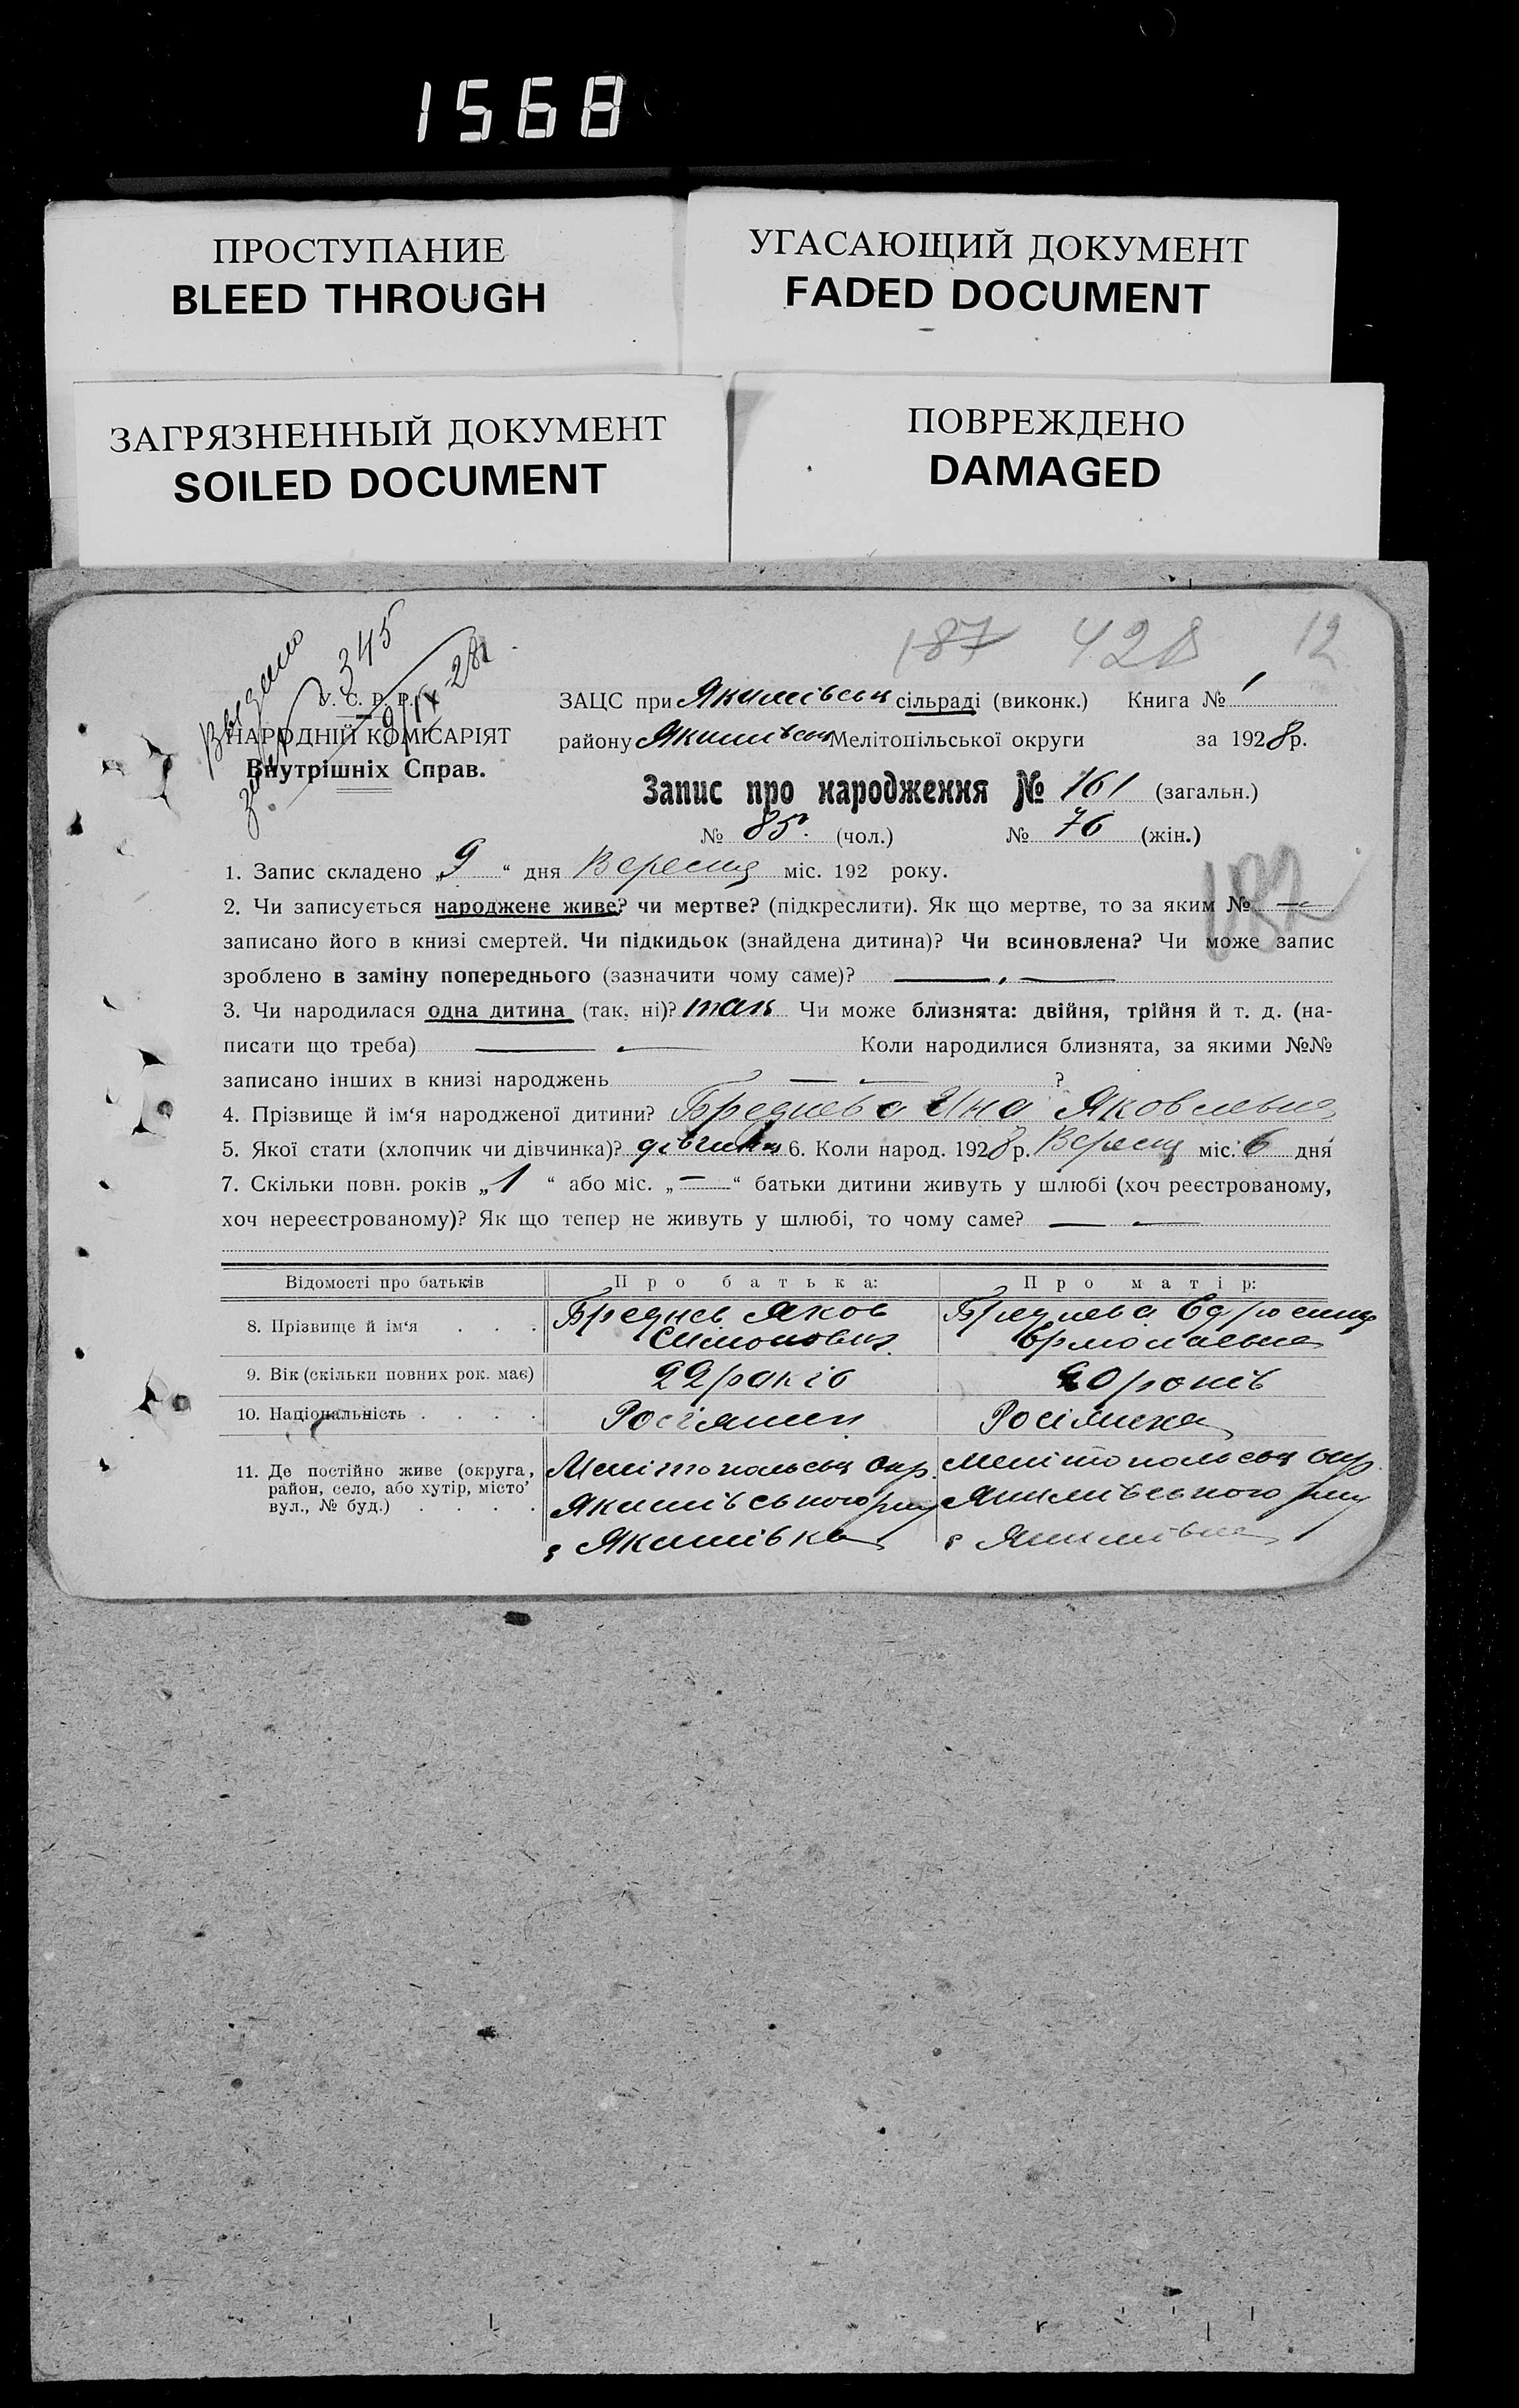 1568
ПРОСТУПАНИЕ
BLEED THROUGH
УГАСАЮЩИЙ ДОКУМЕНТ
FADED DOCUMENT
ЗАГРЯЗНЕННЫЙ ДОКУМЕНТ
SOILED DOCUMENT
ПОВРЕЖДЕНО
DAMAGED
187 428 12
345
У. С. Р. Р.
НАРОДНІЙ КОМІСАРІЯТ
Внутрішніх Справ.
ЗАЦС при Якимівськ сільраді (виконк.) Книга № 1
району Якимівськ Мелітопільської округи за 1928 р.
Запис про народження № 161 (загальн.)
№ 85. (чол.) № 76 (жін.)
1. Запис складено „9“ дня Вересня міс. 192 року.
2. Чи записується народжене живе? чи мертве? (підкреслити). Як що мертве, то за яким № —
записано його в книзі смертей. Чи підкидьок (знайдена дитина)? Чи всиновлена? Чи може запис
зроблено в заміну попереднього (зазначити чому саме)? — —
3. Чи народилася одна дитина (так, ні)? так Чи може близнята: двійня, трійня й т. д. (на-
писати що треба) — — Коли народилися близнята, за якими №№
записано інших в книзі народжень — — ?
4. Прізвище й ім‘я народженої дитини? Бреднева Ина Яковлевна
5. Якої стати (хлопчик чи дівчинка)? дівчинка 6. Коли народ. 1928 р. Вересня міс. 6 дня
7. Скільки повн. років „1“ або міс. „—“ батьки дитини живуть у шлюбі (хоч реєстрованому,
хоч нереєстрованому)? Як що тепер не живуть у шлюбі, то чому саме? — —
Відомості про батьків Про батька: Про матір:
8. Прізвище й ім‘я . . . Бреднев Яков Бреднева Єдросиня
Єрмолаевна
9. Вік (скільки повних рок. має) 22 років 20 років
10. Національність . . . . Росіянин Росіянка
11. Де постійно живе (округа, Мелітопольськ окр. Мелітопольськ окр.
район, село, або хутір, місто,
вул., № буд.) . . . . Якимівського р-ну Якимівського р-ну
с Якимівка с Якимівка